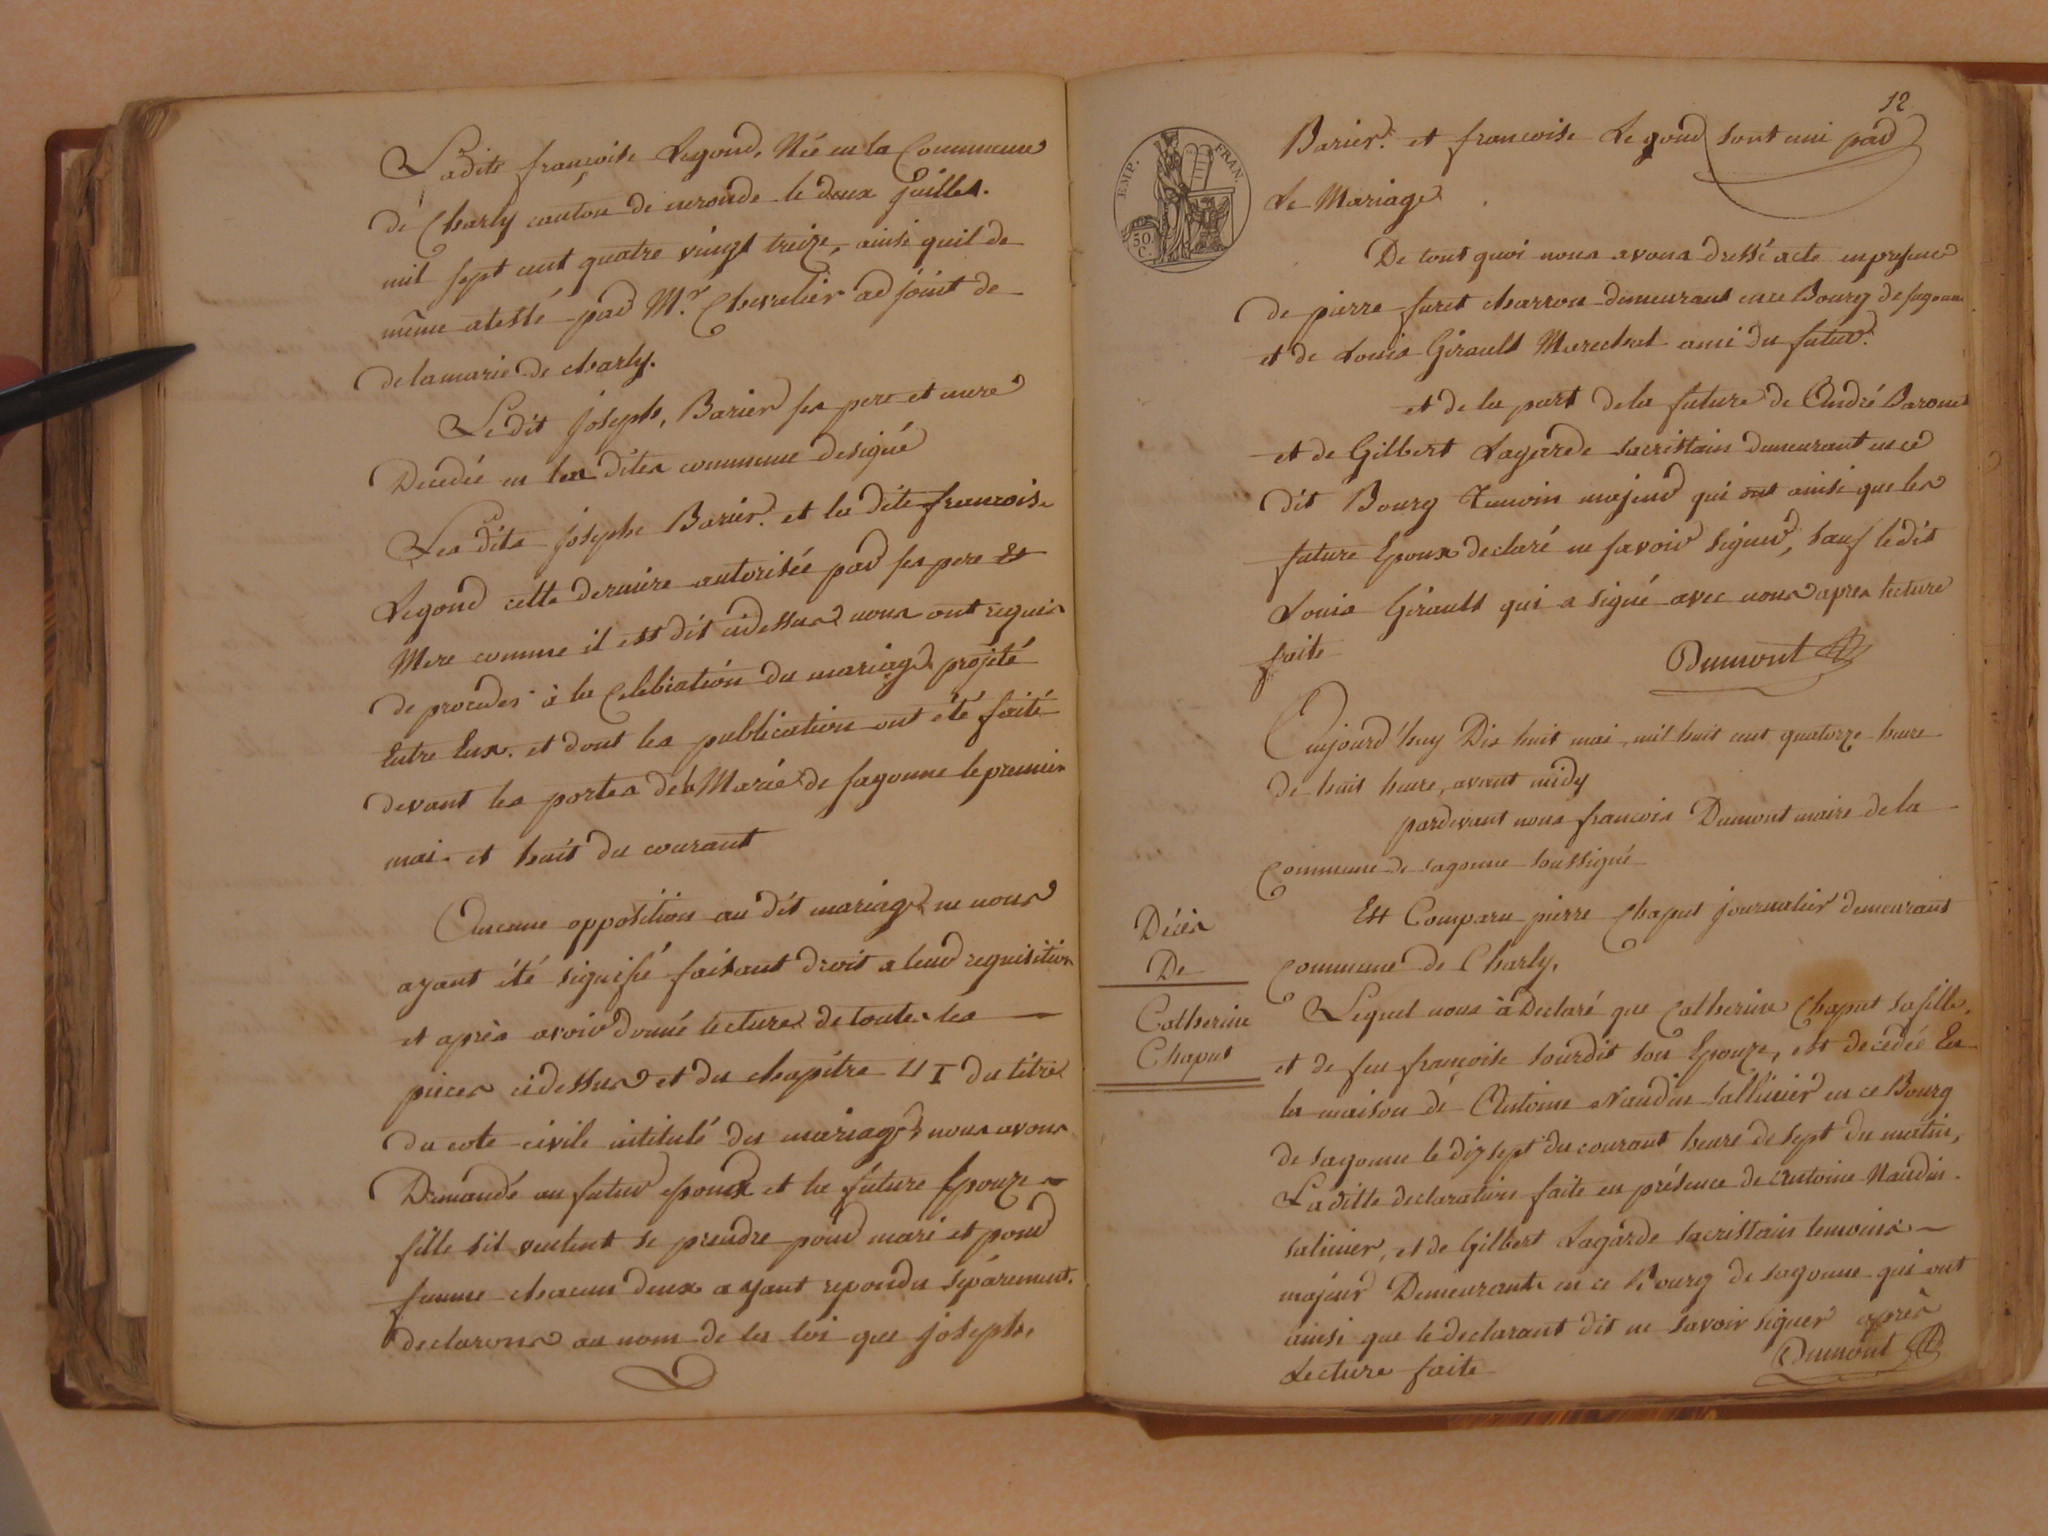 Ladite françoise Legond, Née en la Commune
de Charly canton de neronde le deux juillet.
mil sept cent quatre vingt treize, ainsi quil de
même atesté par Mr. Chevalier adjoint de
delamarie de charly.
Ledit joseph, Barier ses pere et mere
Decedée en les dites commune designé
Les dits joseph Barier. et la dite francoise
Legond cette derniere autorisée par ses pere et
Mere comme il est dit cidessus nous ont requis
de proceder à la Celebration du mariage projeté
Entre Eux. et dont les publication ont été faité
devant les portes dela Marie de sagonne le premier
mai. et huit du courant
Aucune opposition au dit mariage ne nous
ayant été signifié faisant droit a leur requisition
et après avoir donné lecture de toutes les
pieces cidessus et du chapitre du titre
du code civile intitulé du mariage, nous avons
Demandé au futur epoux et la future Epouze
fille sil veulent se prendre pour mari et pour
femme chacun deux ayant repondu séparement.
declarons au nom de la loi que joseph,
12
EMP. FRAN.
50
C.
Barier. et francoise Legond sont uni par
Le Mariage
De tout quoi nous avons dressé acte en presence
de pierre furet charron demeurant en ce Bourg de sagonne
et de Louis Girault Marechal ami du futur.
et de la part de la future de André Baronet
et de Gilbert Lagarde sacristain demeurant en ce
dit Bourg Temoin majeur qui ont ainsi que les
future Epoux declaré ne savoir signer, sauf ledit
Louis Girault qui a signé avec nous apres lecture
faite
Dumont
Aujourd'huy Dix huit mai mil huit cent quatorze heure
de huit heure, avant midy
pardevant nous francois Dumont maire de la
Commune de sagonne soussigné
Est Comparu pierre Chaput journalier demeurant
Commune de Charly.
Décès
De
Catherine
Chaput
Lequel nous à Declaré que Catherine Chaput sa fille,
et de feu françoise sourdit son Epouze, est decedée En
la maison de Antoine Naudin salinier en ce Bourg
de sagonne le dix sept du courant heure de sept du matin,
Laditte declaration faite en présence de Antoine Naudin
salinier, et de Gilbert Lagarde sacristain temoins
majeur Demeurants en ce Bourg de sagonne qui ont
ainsi que le declarant dit ne savoir signer après
Lecture faite
Dumont